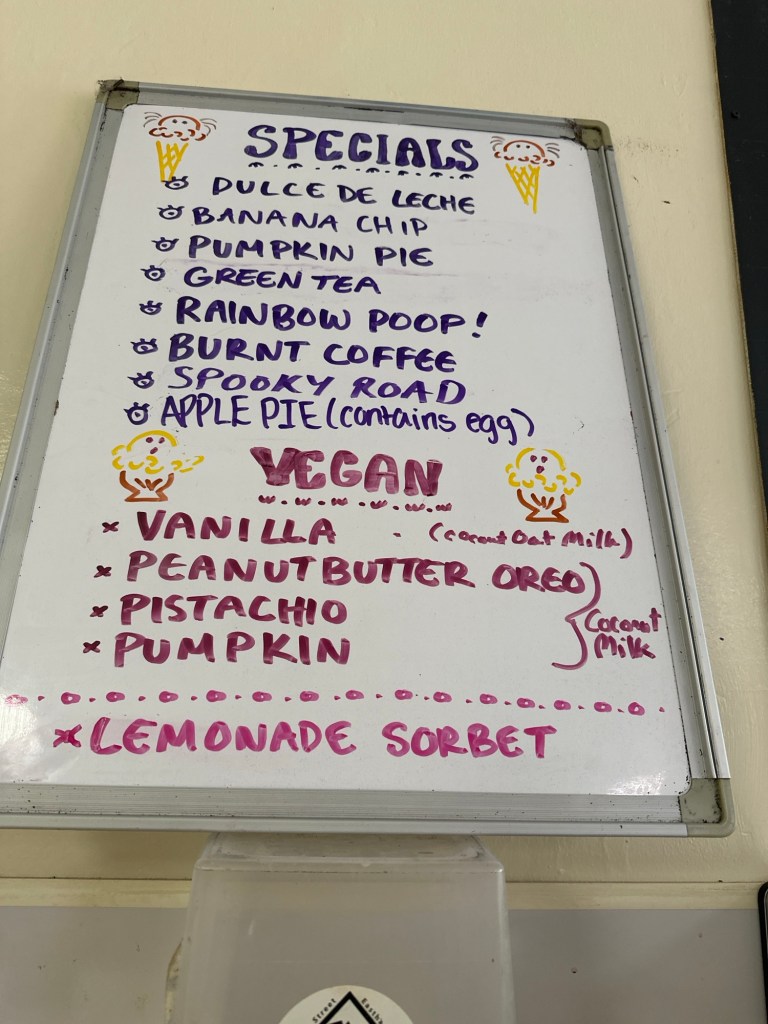 SPECIALS
DULCE DE LECHE
BANANA CHIP
PUMPKIN PIE
GREEN TEA
RAINBOW POOP!
BURNT COFFEE
SPOOKY ROAD
APPLE PIE (contains egg)
VEGAN
VANILLA - (coconut Oat Milk)
PEANUT BUTTER OREO
PISTACHIO
Coconut
PUMPKIN
Milk
LEMONADE SORBET
Street